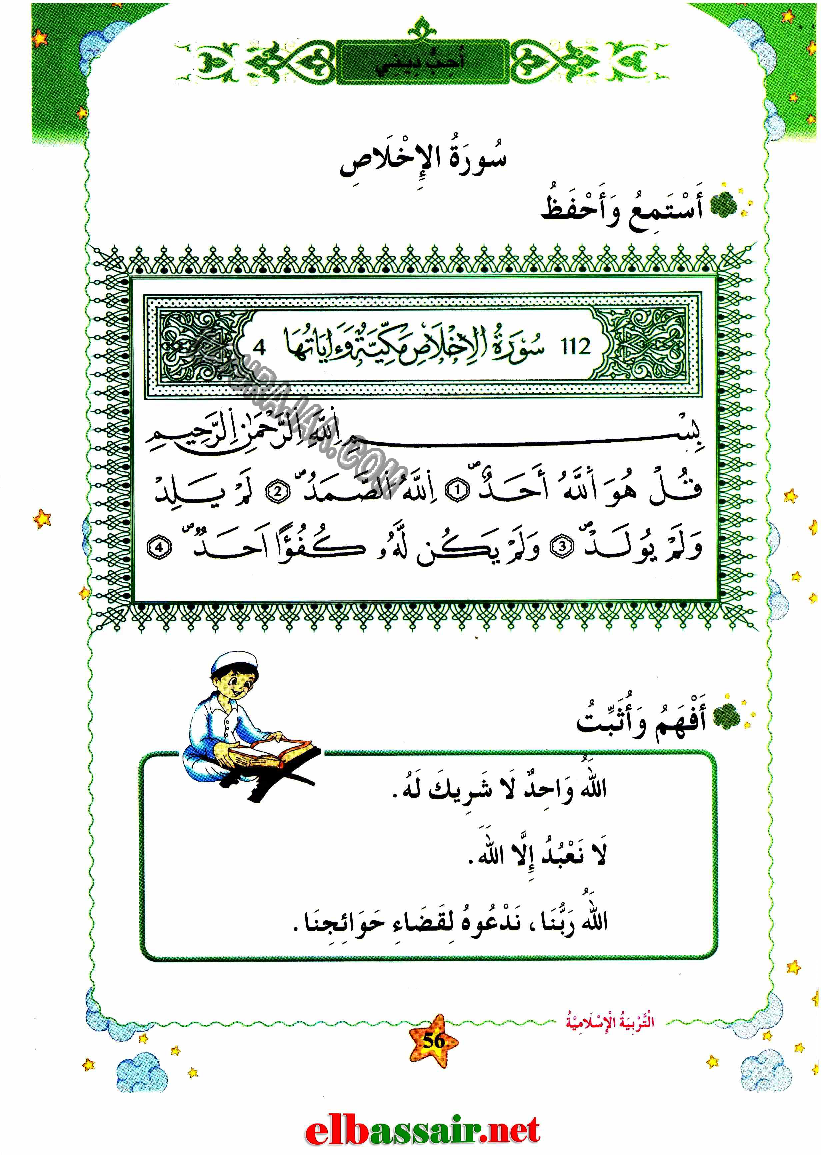 أُحِبُّ دِينِي
سُورَةُ الْإِخْلَاصِ
أَسْتَمِعُ وَأَحْفَظُ
112 سُورَةُ الِاخْلَاصِ مَكِّيَّةٌ وَءَايَاتُهَا 4
بِسْمِ اِللَّهِ اِلرَّحْمَٰنِ اِلرَّحِيمِ
قُلْ هُوَ اَللَّهُ أَحَدٌ ① اِللَّهُ اُلصَّمَدُ ② لَمْ يَلِدْ
وَلَمْ يُولَدْ ③ وَلَمْ يَكُن لَّهُۥ كُفُؤًا اَحَدٌ ④
أَفْهَمُ وَأُثَبِّتُ
اللَّهُ وَاحِدٌ لَا شَرِيكَ لَهُ.
لَا نَعْبُدُ إِلَّا اللَّهَ.
اللَّهُ رَبُّنَا، نَدْعُوهُ لِقَضَاءِ حَوَائِجِنَا.
التَّرْبِيَةُ الْإِسْلَامِيَّةُ
56
elbassair.net